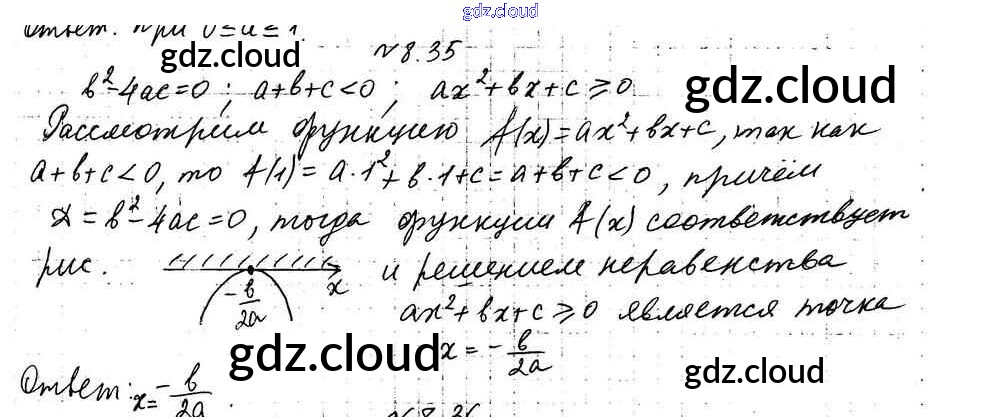 gdz.cloud
Ответ: при 0≤a≤1.
№8.35
gdz.cloud
gdz.cloud
b²-4ac=0; a+b+c<0; ax²+bx+c≥0
Рассмотрим функцию f(x)=ax²+bx+c, так как
a+b+c<0, то f(1)=a·1²+b·1+c=a+b+c<0, причём
D=b²-4ac=0, тогда функции f(x) соответствует
рис. -b/2a x и решением неравенства
ax²+bx+c≥0 является точка
x=-b/2a
gdz.cloud
gdz.cloud
Ответ: x=-b/2a.
№8.36